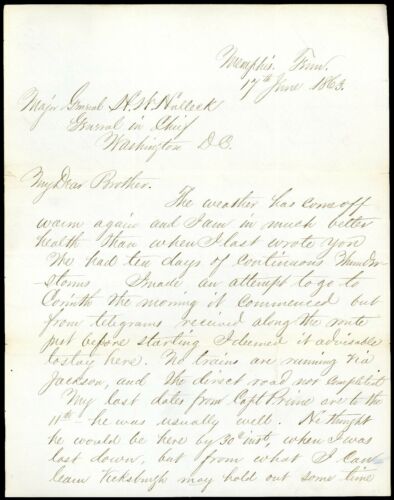 Memphis. Tenn.
17th June 1863.
Major General H. W. Halleck
General in Chief
Washington D.C.
My Dear Brother.
The weather has come off
warm again and I am in much better
health than when I last wrote you
We had ten days of continuous thunder
-storms I made an attempt to go to
Corinth the morning it commenced but
from telegrams received along the route
just before starting I deemed it advisable
to stay here. No trains are running via
Jackson, and the direct road not completed
My last dates from Capt Prime are to the
11th - he was usually well. He thought
he would be here by 30th inst, when I was
last down, but from what I can
learn Vicksburgh may hold out some time